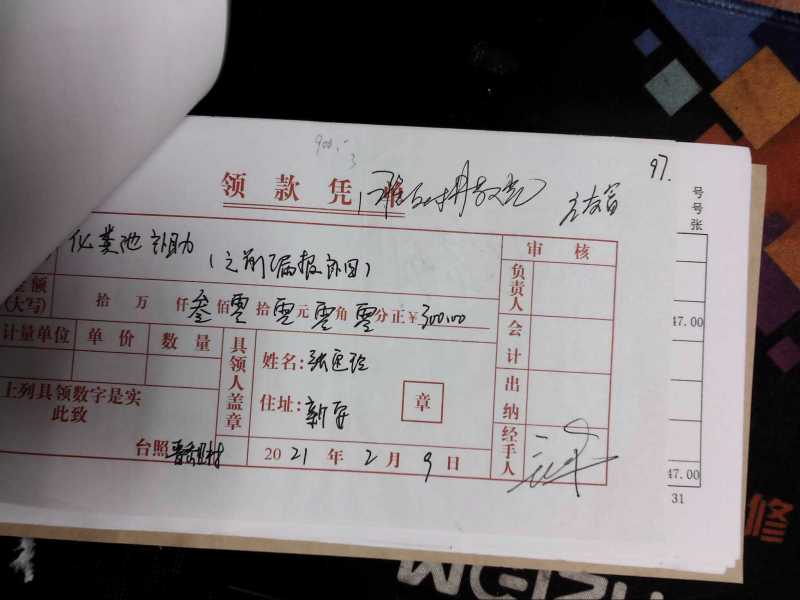 900.-
3
97.
领 款 凭
号
号
张
化粪池补助
(之前漏报
金额
(大写)
拾 万 仟 叁 佰 零 拾 零 元 零 角 零 分 正 ¥ 300.00
计量单位 单价 数量
上列具领数字是实
此致
台照
具领人盖章
姓名:张
住址:新
章
2021 年 2 月 9 日
审 核
负责人
会计
出纳
经手人
47.00
47.00
31
修